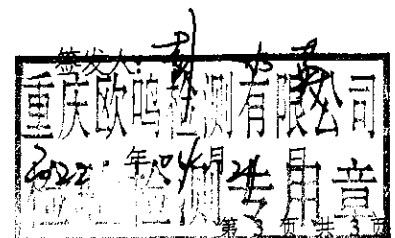 签发人：
重庆欧鸣检测有限公司
2022年04月24日
检验检测专用章
第3页 共3页